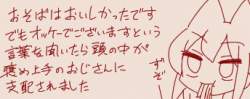 おそばはおいしかったです
でもオッケーでございますという
言葉を聞いたら頭の中が
褒め上手のおじさんに
支配されました
ずぞ